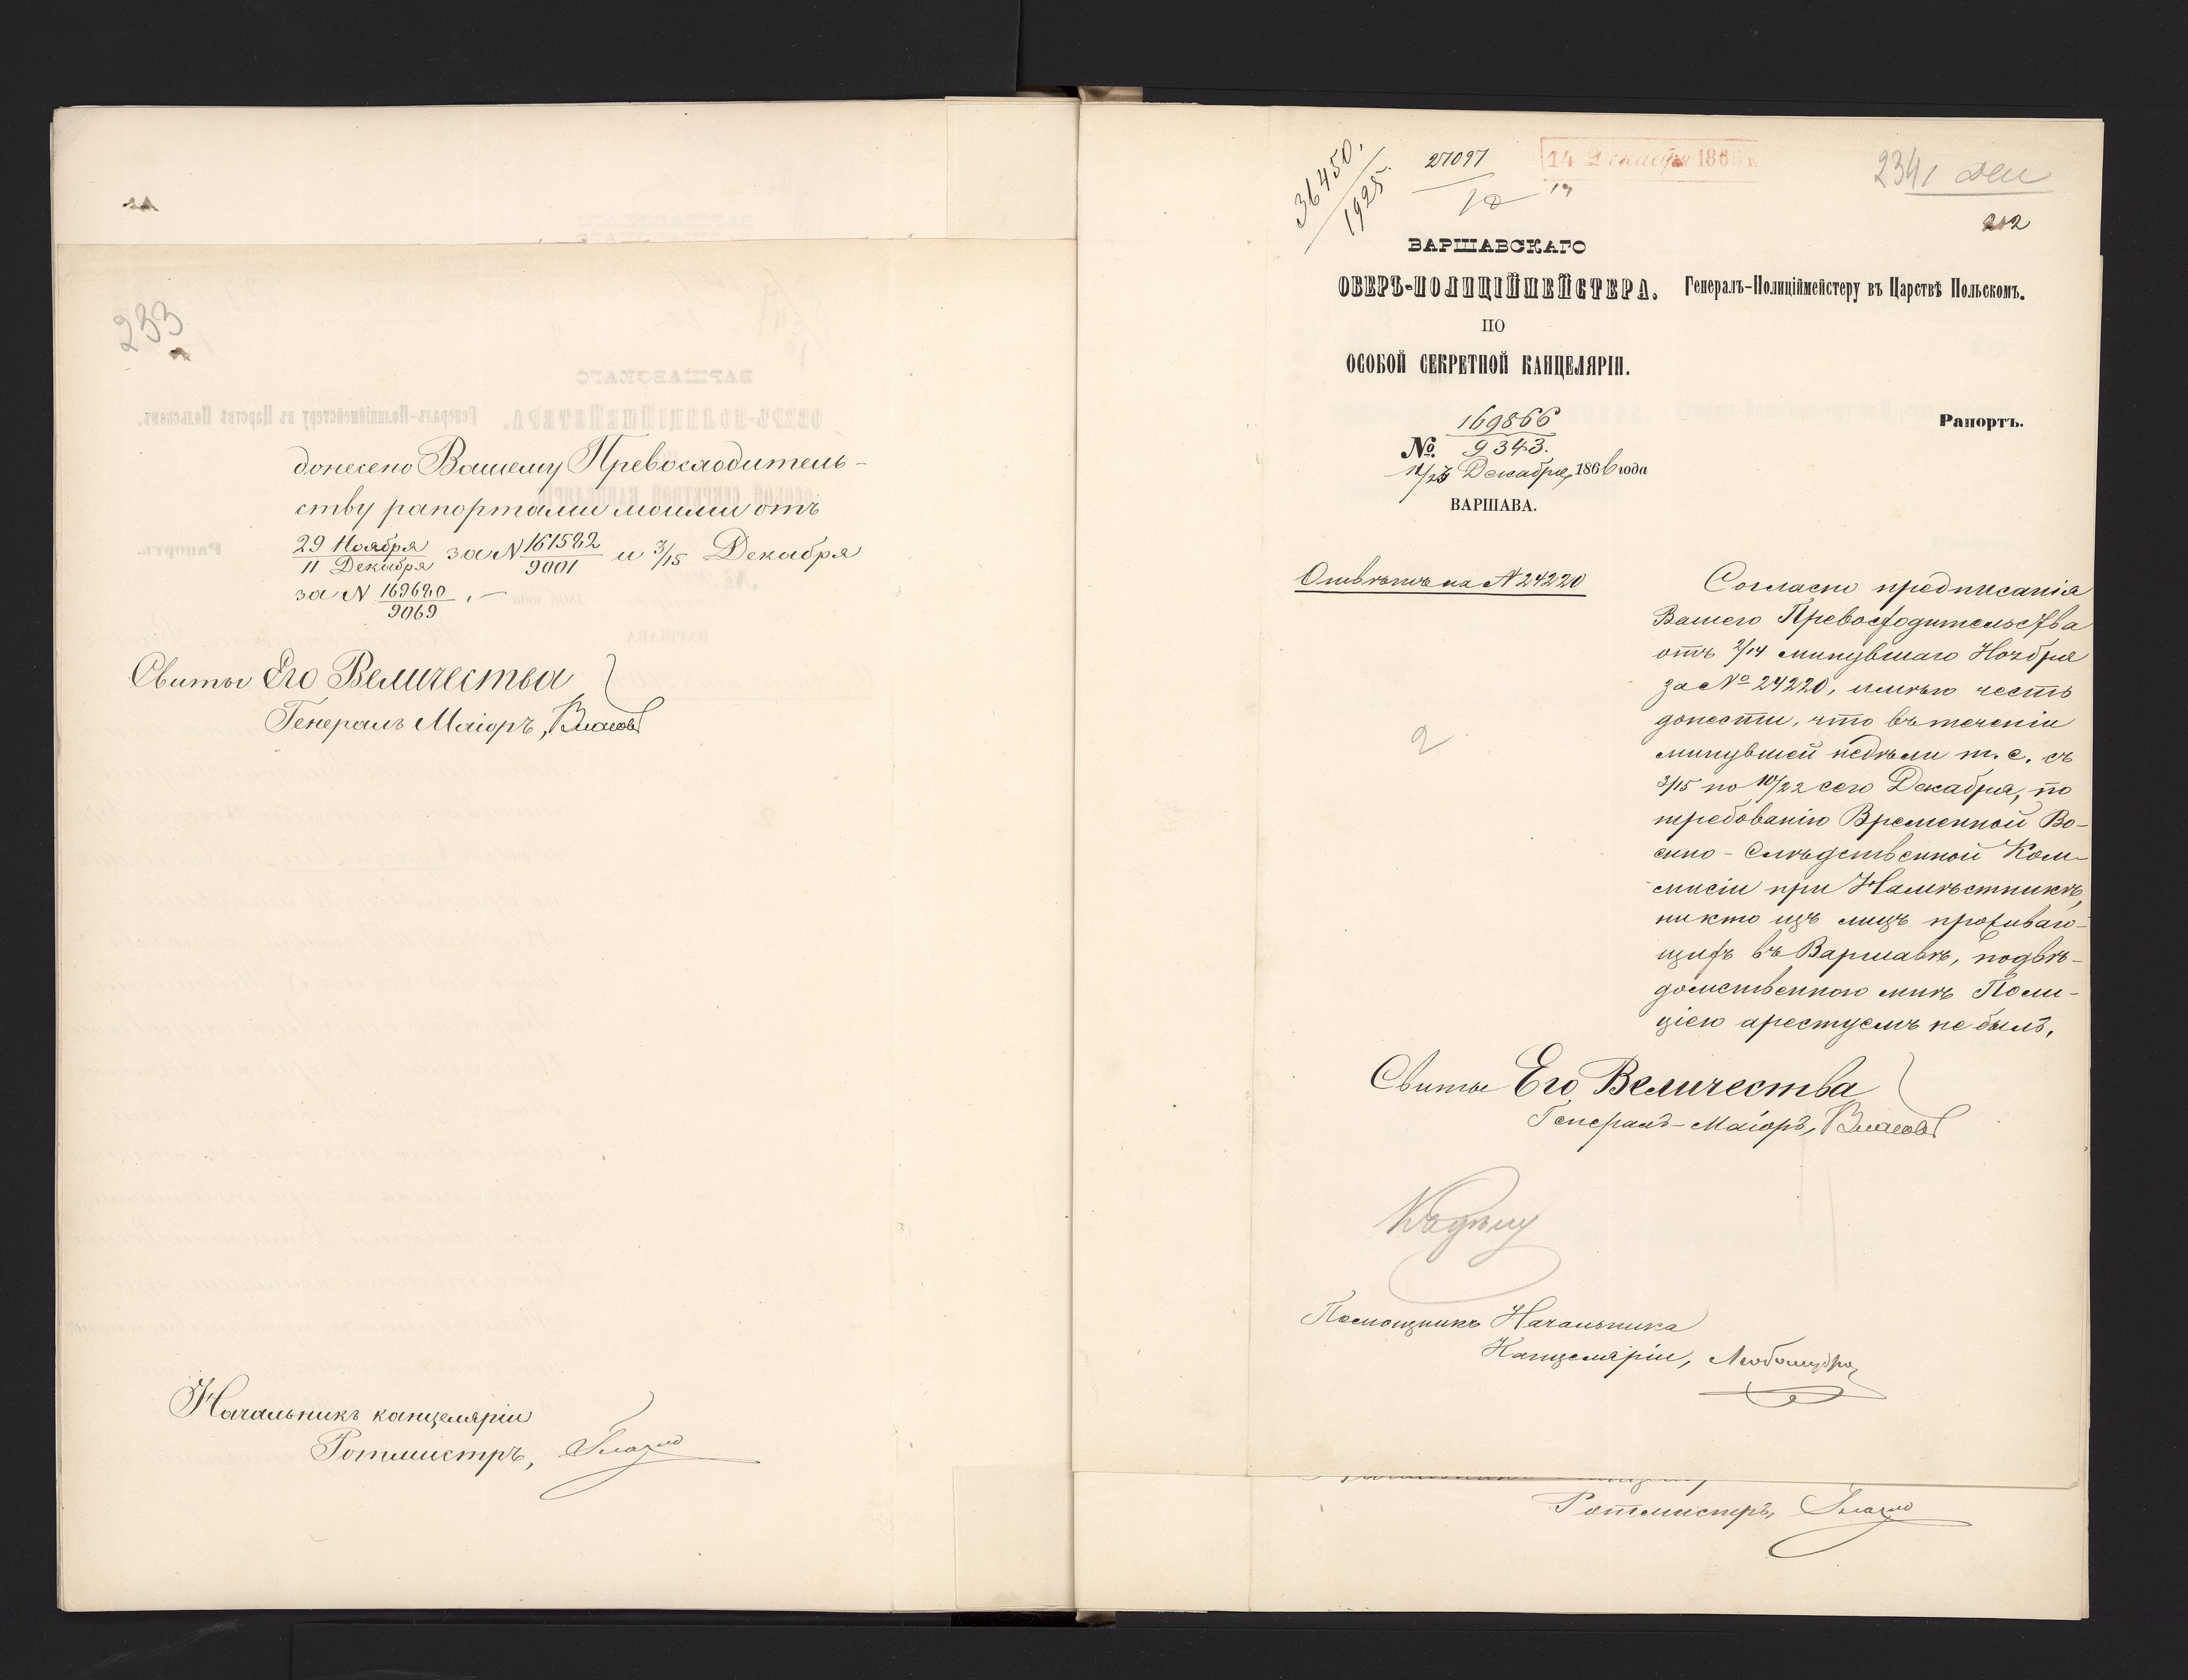 233
донесено Вашему Превосходитель-
ству рапортами моими отъ
29 Ноября / 11 Декабря за N 161582 / 9001 и 3/15 Декабря
за N 169680 / 9069 . —
Свиты Его Величества
Генералъ Маіоръ, Власовъ
Начальникъ канцеляріи
Ротмистръ,
36450. / 1925.
27097 / 12
14 Декабря 186
19
2341
212
ВАРШАВСКАГО
ОБЕРЪ-ПОЛИЦІЙМЕЙСТЕРА.
ПО
ОСОБОЙ СЕКРЕТНОЙ КАНЦЕЛЯРІИ.
169866
№ 9343.
Декабря, 1866 года
ВАРШАВА.
Генералъ-Полиціймейстеру въ Царствѣ Польскомъ.
Рапортъ.
Отвѣтъ на N 24220
2
Согласно предписанія
Вашего Превосходительства
отъ 2/14 минувшаго Ноября
за № 24220, имѣю честь
донести, что въ теченіи
минувшей недѣли т. е. съ
3/15 по 10/22 сего Декабря, по
требованію Временной Во-
енно-Слѣдственной Ком-
мисіи при Намѣстникѣ,
никто изъ лицъ проживаю-
щихъ въ Варшавѣ, подвѣ-
домственною мнѣ Поли-
ціею арестуемъ не былъ.
Свиты Его Величества
Генералъ-Маіоръ, Власовъ
Къ дѣлу
Помощникъ Начальника
Канцеляріи,
Ротмистръ,